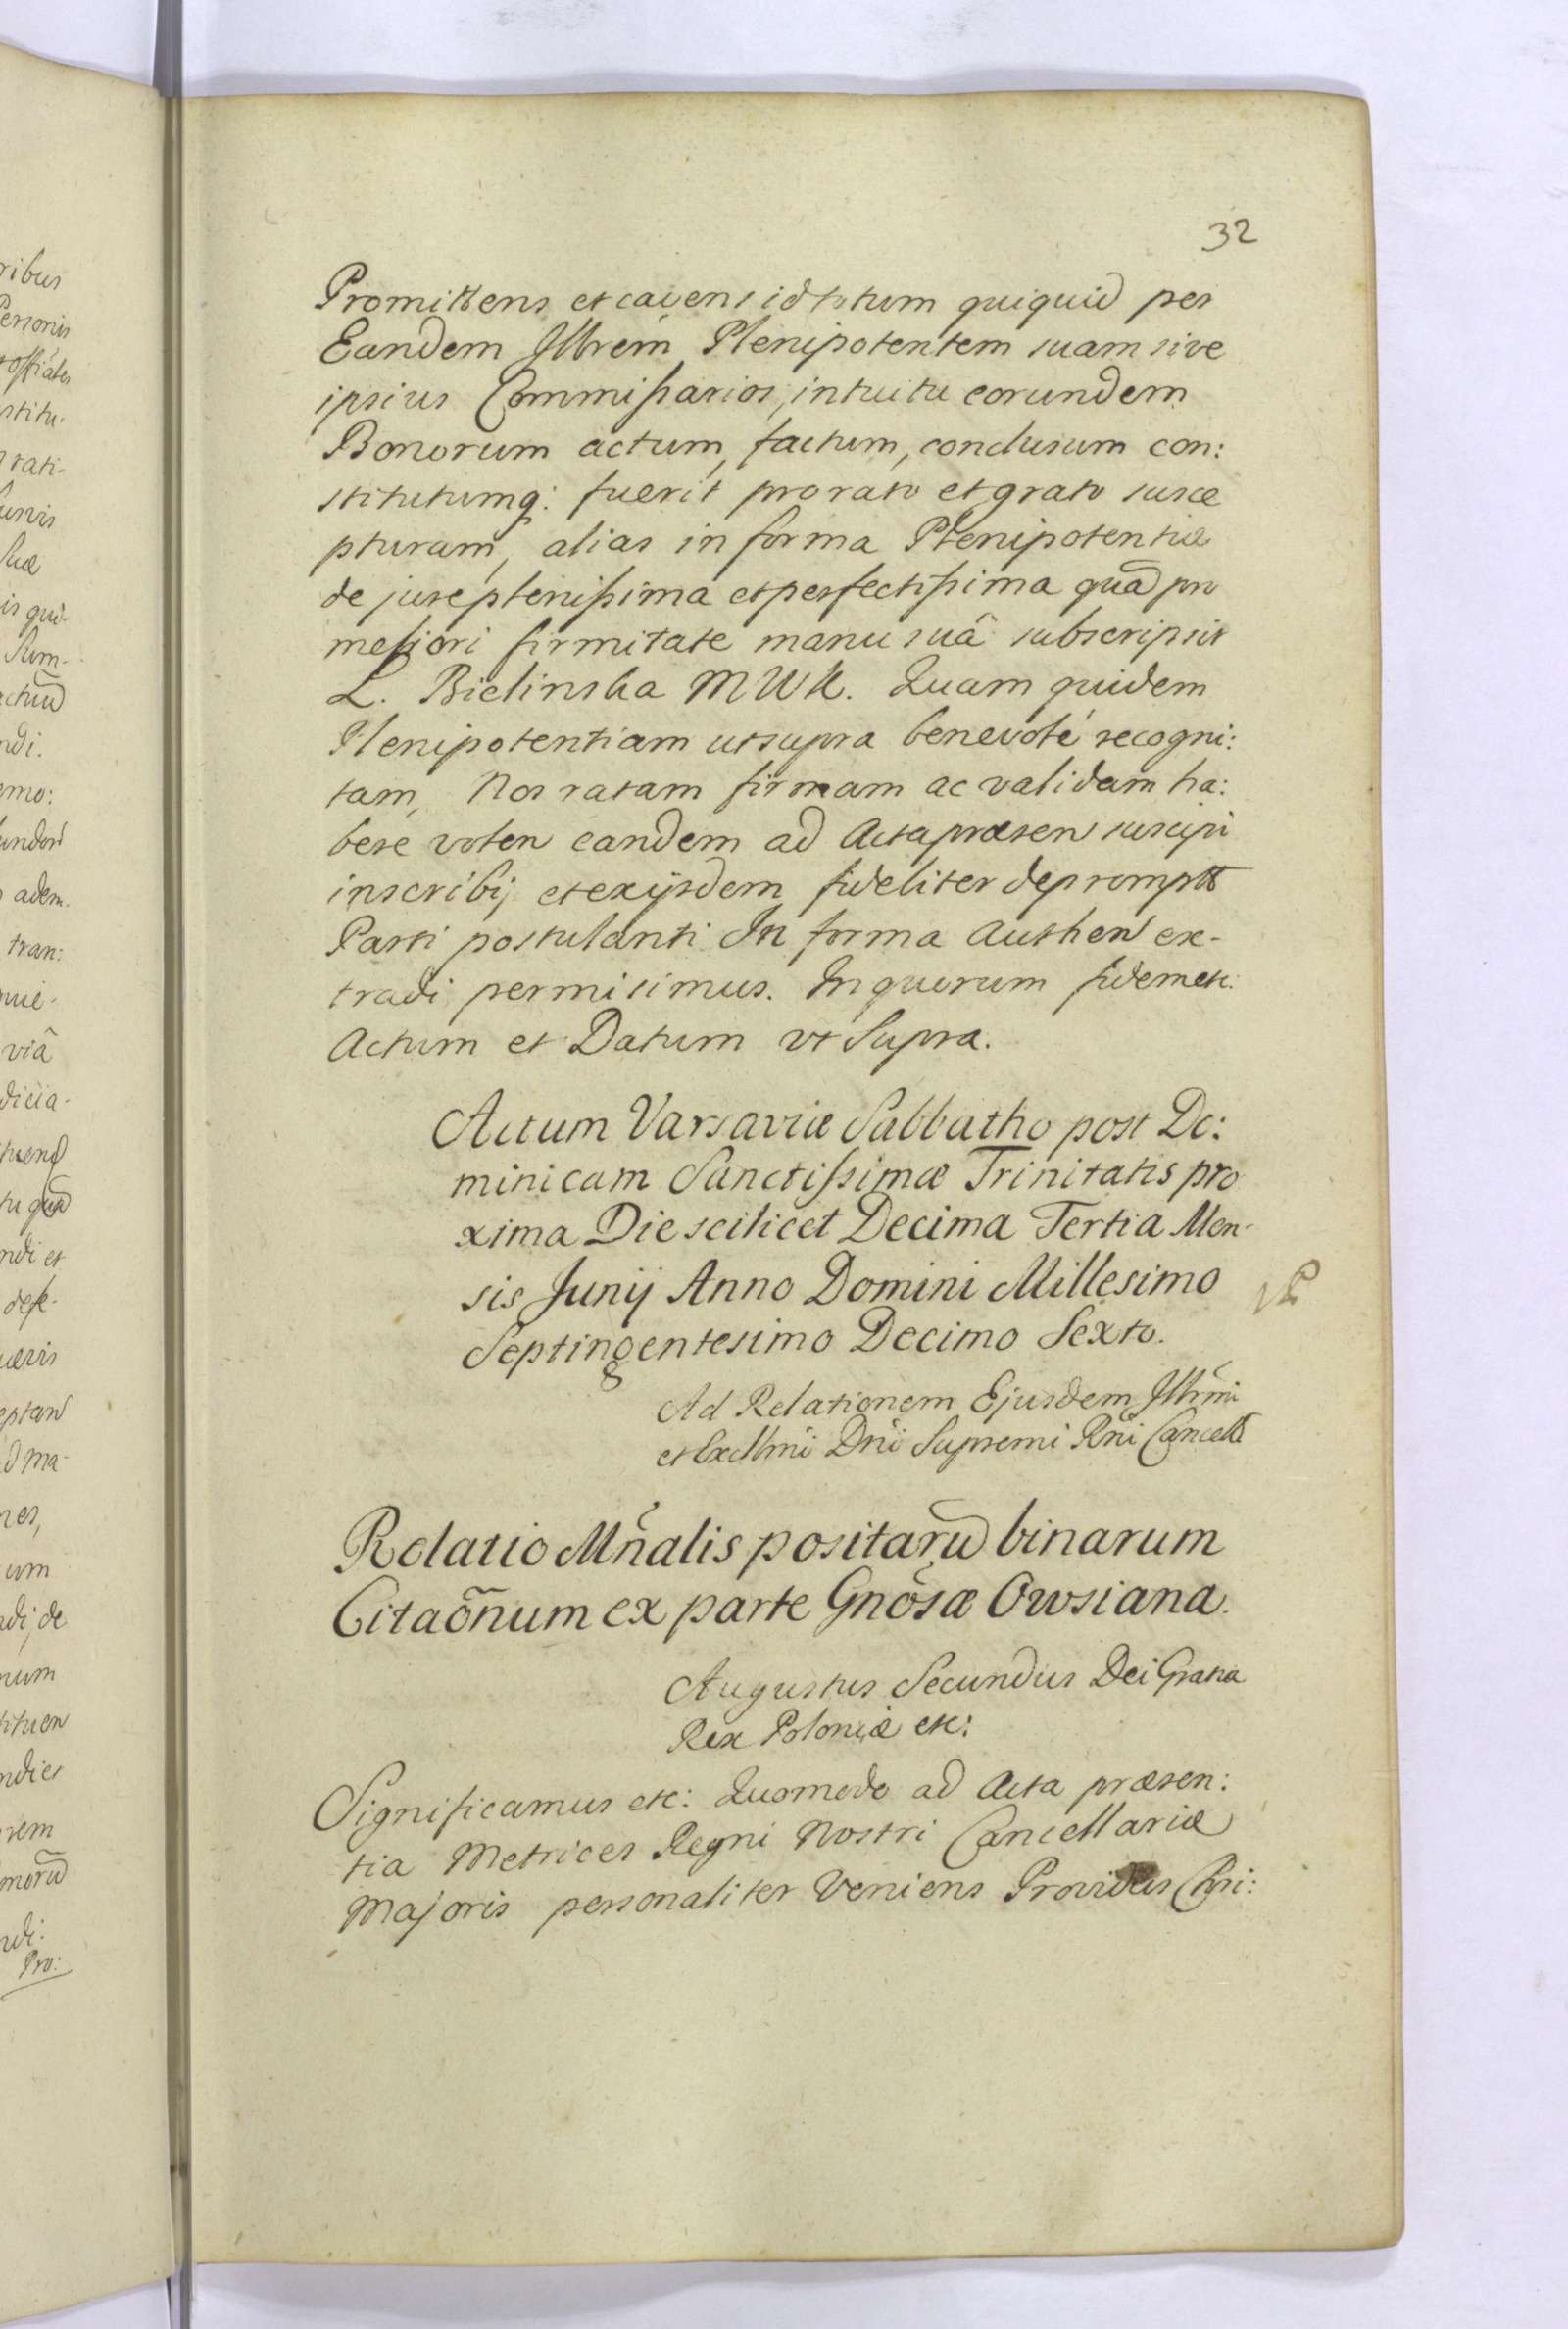 32
Promittens et cavens id totum quiquid per
Eandem Illrem Plenipotentem suam sive
ipsius Commissarios, intuitu eorundem
Bonorum actum, factum, conclusum con:
stitutumq: fuerit pro rato et grato susce
pturam, alias in forma Plenipotentiæ
de jure plenissima et perfectissima quã pro
meliori firmitate manu suâ subscripsit
L. Bielinska MWK. Quam quidem
Plenipotentiam ut supra benevolé recogni:
tam, Nos ratam firmam ac validam ha:
bere volen eandem ad Acta præsen suscipi
inscribij et exijsdem fideliter deprompt
Parti postulanti In forma Authen ex-
tradi permisimus. In quorum fidem etc:
Actum et Datum vt Supra.
Actum Varsaviæ Sabbatho post Do:
minicam Sanctissimæ Trinitatis pro
xima Die scilicet Decima Tertia Men-
sis Junij Anno Domini Millesimo
Septingentesimo Decimo Sexto.
Ad Relationem Ejusdem Illrmi
et Excllmi Dni Supremi Rni Cancell
Relatio Mñalis positarũ binarum
Citaõnum ex parte Gnõsæ Owsiana.
Augustus Secundus Dei Gratia
Rex Poloniæ etc:
Significamus etc: Quomodo ad Acta præsen:
tia Metrices Regni Nostri Cancellariæ
Majoris personaliter Veniens Providus Chri:
ribus
Personis
stitu.
rati-
is qui-
Sum-
ndi.
emo:
adem.
tran:
viâ
dicia-
ndi et
ma-
nes,
um
di, de
num
ndies
rem
Pro: